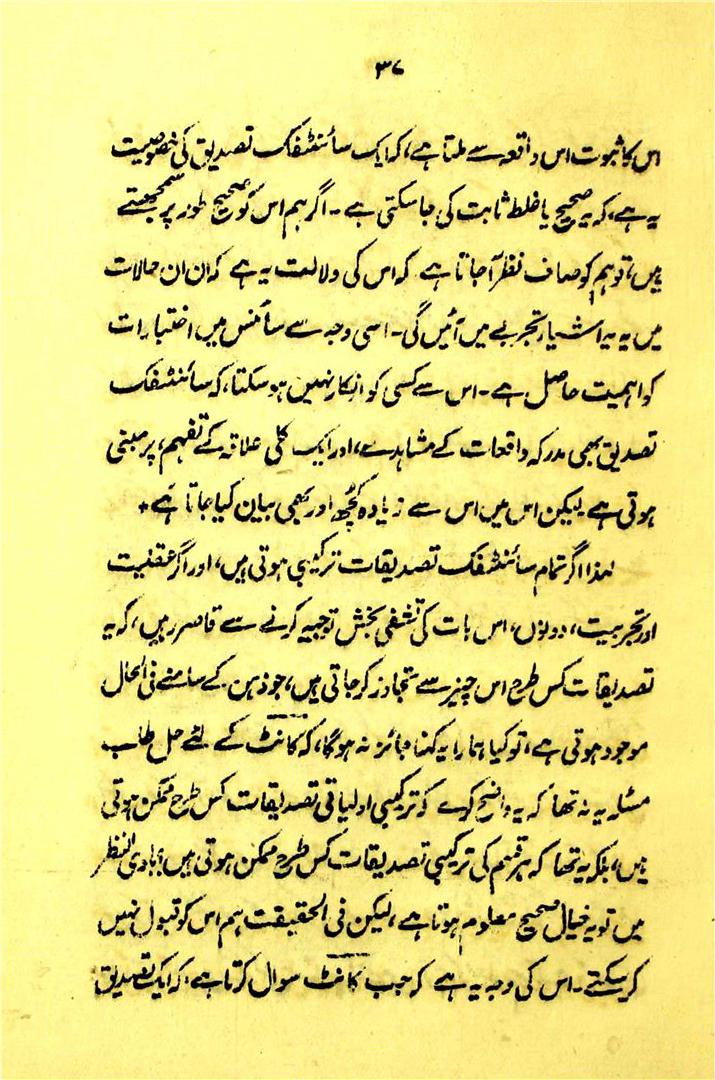 ۳۷
اس کا ثبوت اس واقعہ سے ملتا ہے، کہ ایک سائنٹفک تصدیق کی خصوصیت
یہ ہے، کہ یہ صحیح یا غلط ثابت کی جا سکتی ہے۔ اگر ہم اس کو صحیح طور پر سمجھتے
ہیں، تو ہم کو صاف نظر آ جاتا ہے کہ اس کی دلالت یہ ہے کہ ان ان حالات
میں یہ یہ اشیا تجربے میں آئیں گی۔ اسی وجہ سے سائنس میں اختبارات
کو اہمیت حاصل ہے۔ اس سے کسی کو انکار نہیں ہو سکتا، کہ سائنٹفک
تصدیق بھی مدرکہ واقعات کے مشاہدے، اور ایک کلی علاقہ کے تفہم، پر مبنی
ہوتی ہے لیکن اس میں اس سے زیادہ کچھ اور بھی بیان کیا جاتا ہے۔
لہذا اگر تمام سائنٹفک تصدیقات ترکیبی ہوتی ہیں، اور اگر عقلیت
اور تجربیت، دونوں، اس بات کی تشفی بخش توجیہ کرنے سے قاصر ہیں، کہ یہ
تصدیقات کس طرح اس چیز سے تجاوز کر جاتی ہیں، جو ذہن کے سامنے فی الحال
موجود ہوتی ہے، تو کیا ہمارا یہ کہنا جائز نہ ہوگا، کہ کانٹ کے لئے حل طلب
مسئلہ یہ نہ تھا کہ یہ واضح کرے کہ ترکیبی اولیاتی تصدیقات کس طرح ممکن ہوتی
ہیں، بلکہ یہ تھا کہ ہر قسم کی ترکیبی تصدیقات کس طرح ممکن ہوتی ہیں؟ بادی النظر
میں تو یہ خیال صحیح معلوم ہوتا ہے، لیکن فی الحقیقت ہم اس کو قبول نہیں
کر سکتے۔ اس کی وجہ یہ ہے کہ جب کانٹ سوال کرتا ہے، کہ ایک تصدیق